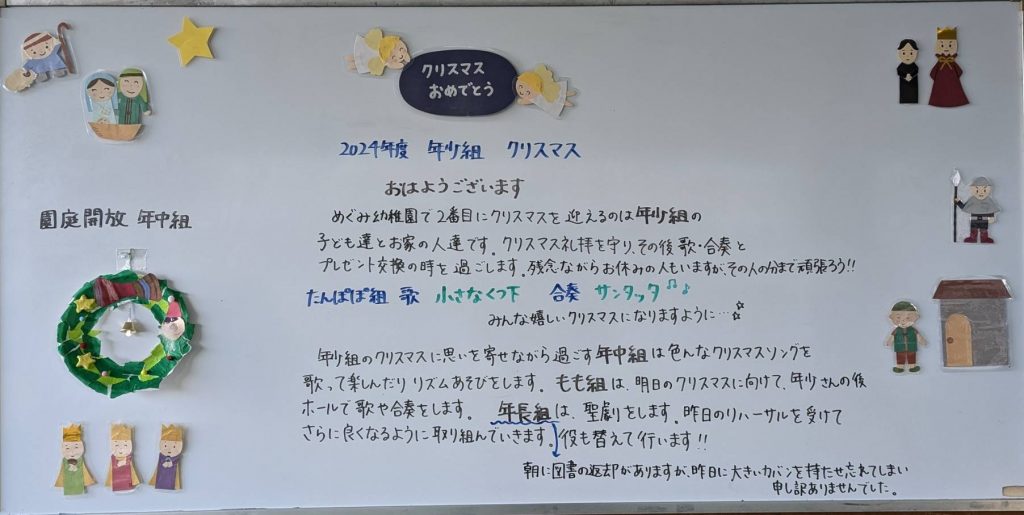 クリスマス
おめでとう
2024年度 年少組 クリスマス
おはようございます
園庭開放 年中組
めぐみ幼稚園で2番目にクリスマスを迎えるのは年少組の
子ども達とお家の人達です。クリスマス礼拝を守り、その後歌・合奏と
プレゼント交換の時を過ごします。残念ながらお休みの人もいますが、その人の分まで頑張ろう!!
たんぽぽ組 歌 小さなくつ下 合奏 サンタッタ♫♪
みんな嬉しいクリスマスになりますように…☆
年少組のクリスマスに思いを寄せながら過ごす年中組は色んなクリスマスソングを
歌って楽しんだりリズムあそびをします。もも組は、明日のクリスマスに向けて、年少さんの後
ホールで歌や合奏をします。 年長組は、聖劇をします。昨日のリハーサルを受けて
さらに良くなるように取り組んでいきます。役も替えて行います!!
朝に図書の返却がありますが、昨日に大きいカバンを持たせ忘れてしまい
申し訳ありませんでした。